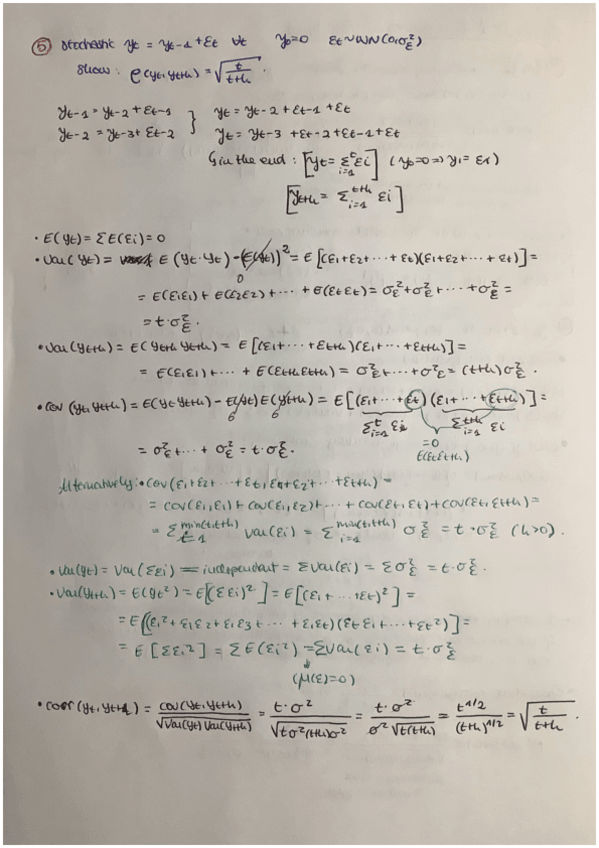 ⑤ stochastic yt = yt-1 + εt ∀t y₀=0 εt ~ WN(0,σ²ε)
show: ρ(yt, yt+h) = √(t/(t+h)).
yt-1 = yt-2 + εt-1 } yt = yt-2 + εt-1 + εt
yt-2 = yt-3 + εt-2 yt = yt-3 + εt-2 + εt-1 + εt
in the end: [yt = Σᵗᵢ₌₁ εi] (y₀=0 => y₁ = ε₁)
[yt+h = Σᵗ⁺ʰᵢ₌₁ εi]
• E(yt) = ΣE(εi) = 0
• var(yt) = E(yt·yt) - (E(yt))² = E[(ε1+ε2+···+εt)(ε1+ε2+···+εt)] =
0
= E(ε1ε1) + E(ε2ε2) + ··· + E(εtεt) = σ²ε + σ²ε + ··· + σ²ε =
= t·σ²ε.
• var(yt+h) = E(yt+h yt+h) = E[(ε1+···+εt+h)(ε1+···+εt+h)] =
= E(ε1ε1) + ··· + E(εt+hεt+h) = σ²ε + ··· + σ²ε = (t+h)σ²ε.
• cov(yt, yt+h) = E(yt yt+h) - E(yt)E(yt+h) = E[(ε1+···+εt)(ε1+···+εt+h)] =
0 0 Σᵗᵢ₌₁ εi Σᵗ⁺ʰᵢ₌₁ εi
=0
E(εtεt+h)
= σ²ε + ··· + σ²ε = t·σ²ε.
Alternatively: • cov(ε1+ε2+···+εt, ε1+ε2+···+εt+h) =
= cov(ε1,ε1) + cov(ε1,ε2) + ··· + cov(εt,εt) + cov(εt,εt+h) =
= Σ^min(t,t+h) t=1 var(εi) = Σ^min(t,t+h) i=1 σ²ε = t·σ²ε (h>0).
• var(yt) = var(Σεi) = independent = Σvar(εi) = Σσ²ε = t·σ²ε.
• var(yt+h) = E(yt²) = E[(Σεi)²] = E[(ε1+...+εt)²] =
= E[(ε1²+ε1ε2+ε1ε3+···+ε1εt)(εtε1+···+εt²)] =
= E[Σεi²] = ΣE(εi²) = Σvar(εi) = t·σ²ε
↓
(μ(ε)=0)
• corr(yt, yt+h) = cov(yt,yt+h)/√(var(yt) var(yt+h)) = t·σ²/√(tσ²(t+h)σ²) = t·σ²/(σ²√(t(t+h))) = t^1/2/(t+h)^1/2 = √(t/(t+h)).